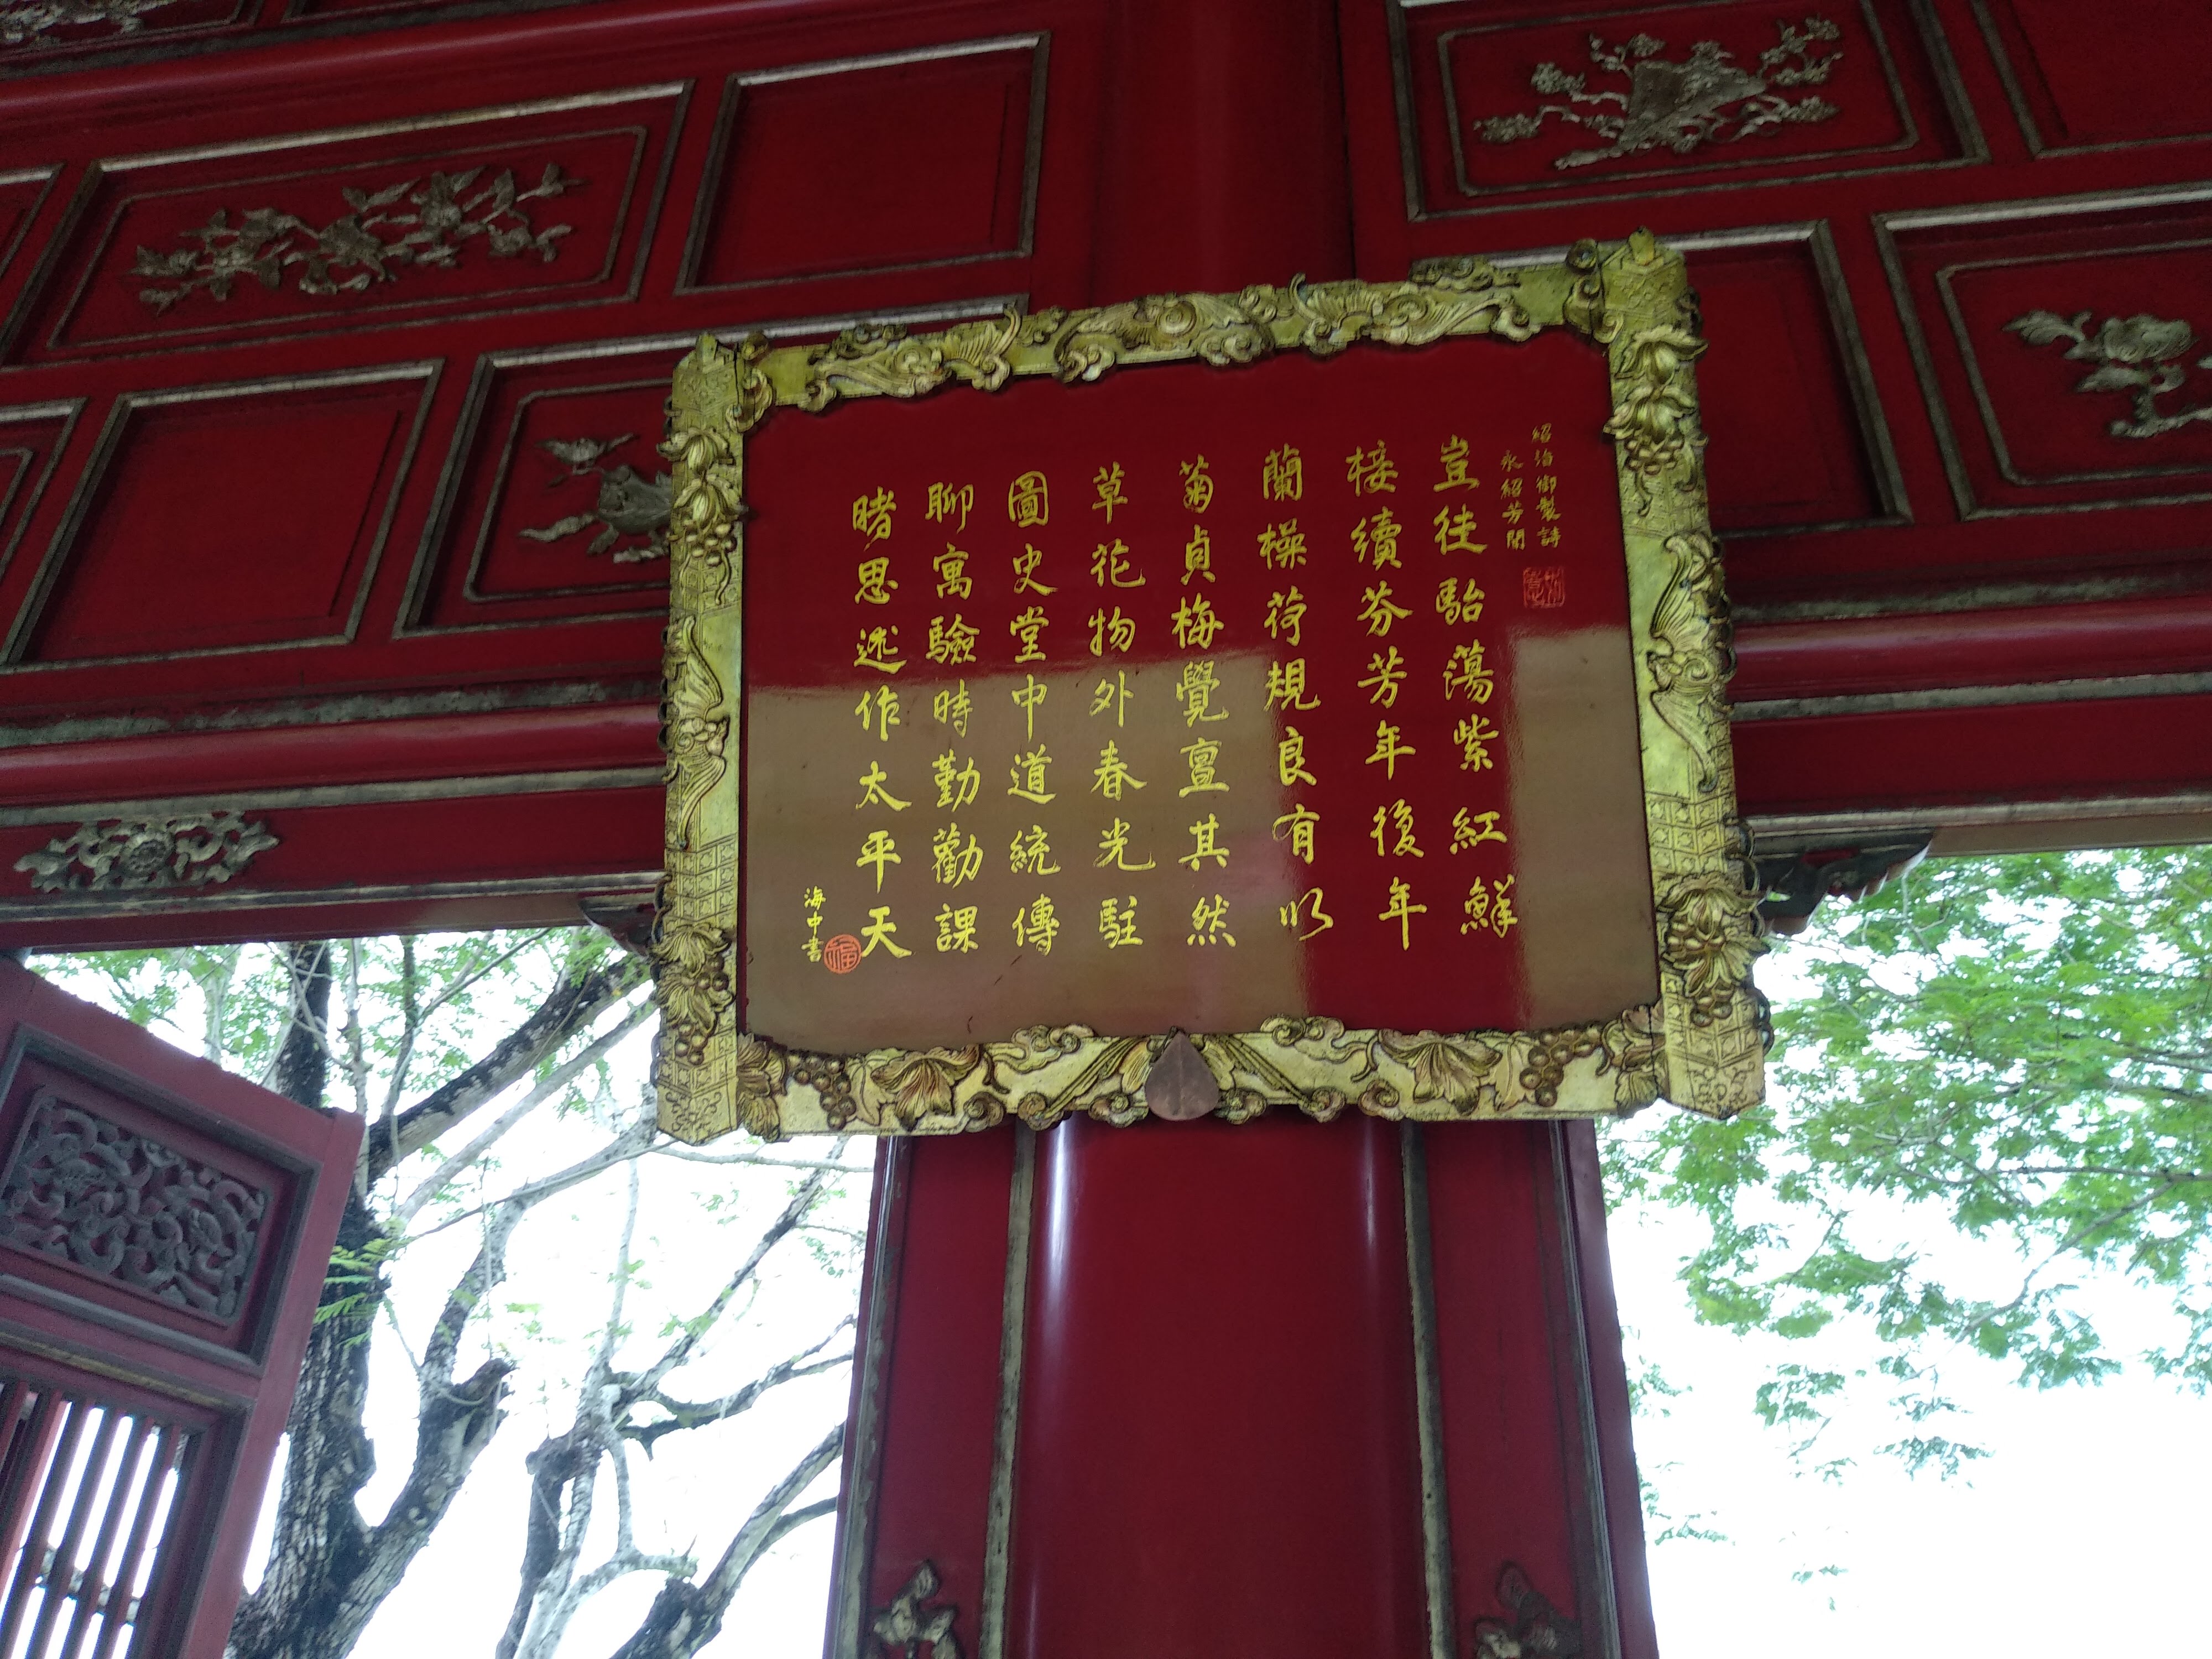 紹治御製詩
永紹芳閣
豈徒駘蕩紫紅鮮
接續芬芳年復年
蘭橾荷規良有以
菊貞梅覺亶其然
草花物外春光駐
圖史堂中道統傳
聊寓驗時勤勸課
睹思述作太平天
海中書